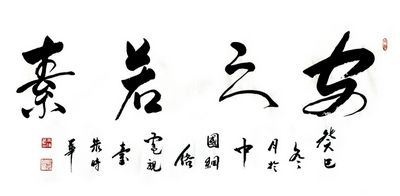 安之若素
癸巳冬月於中國網絡電視臺